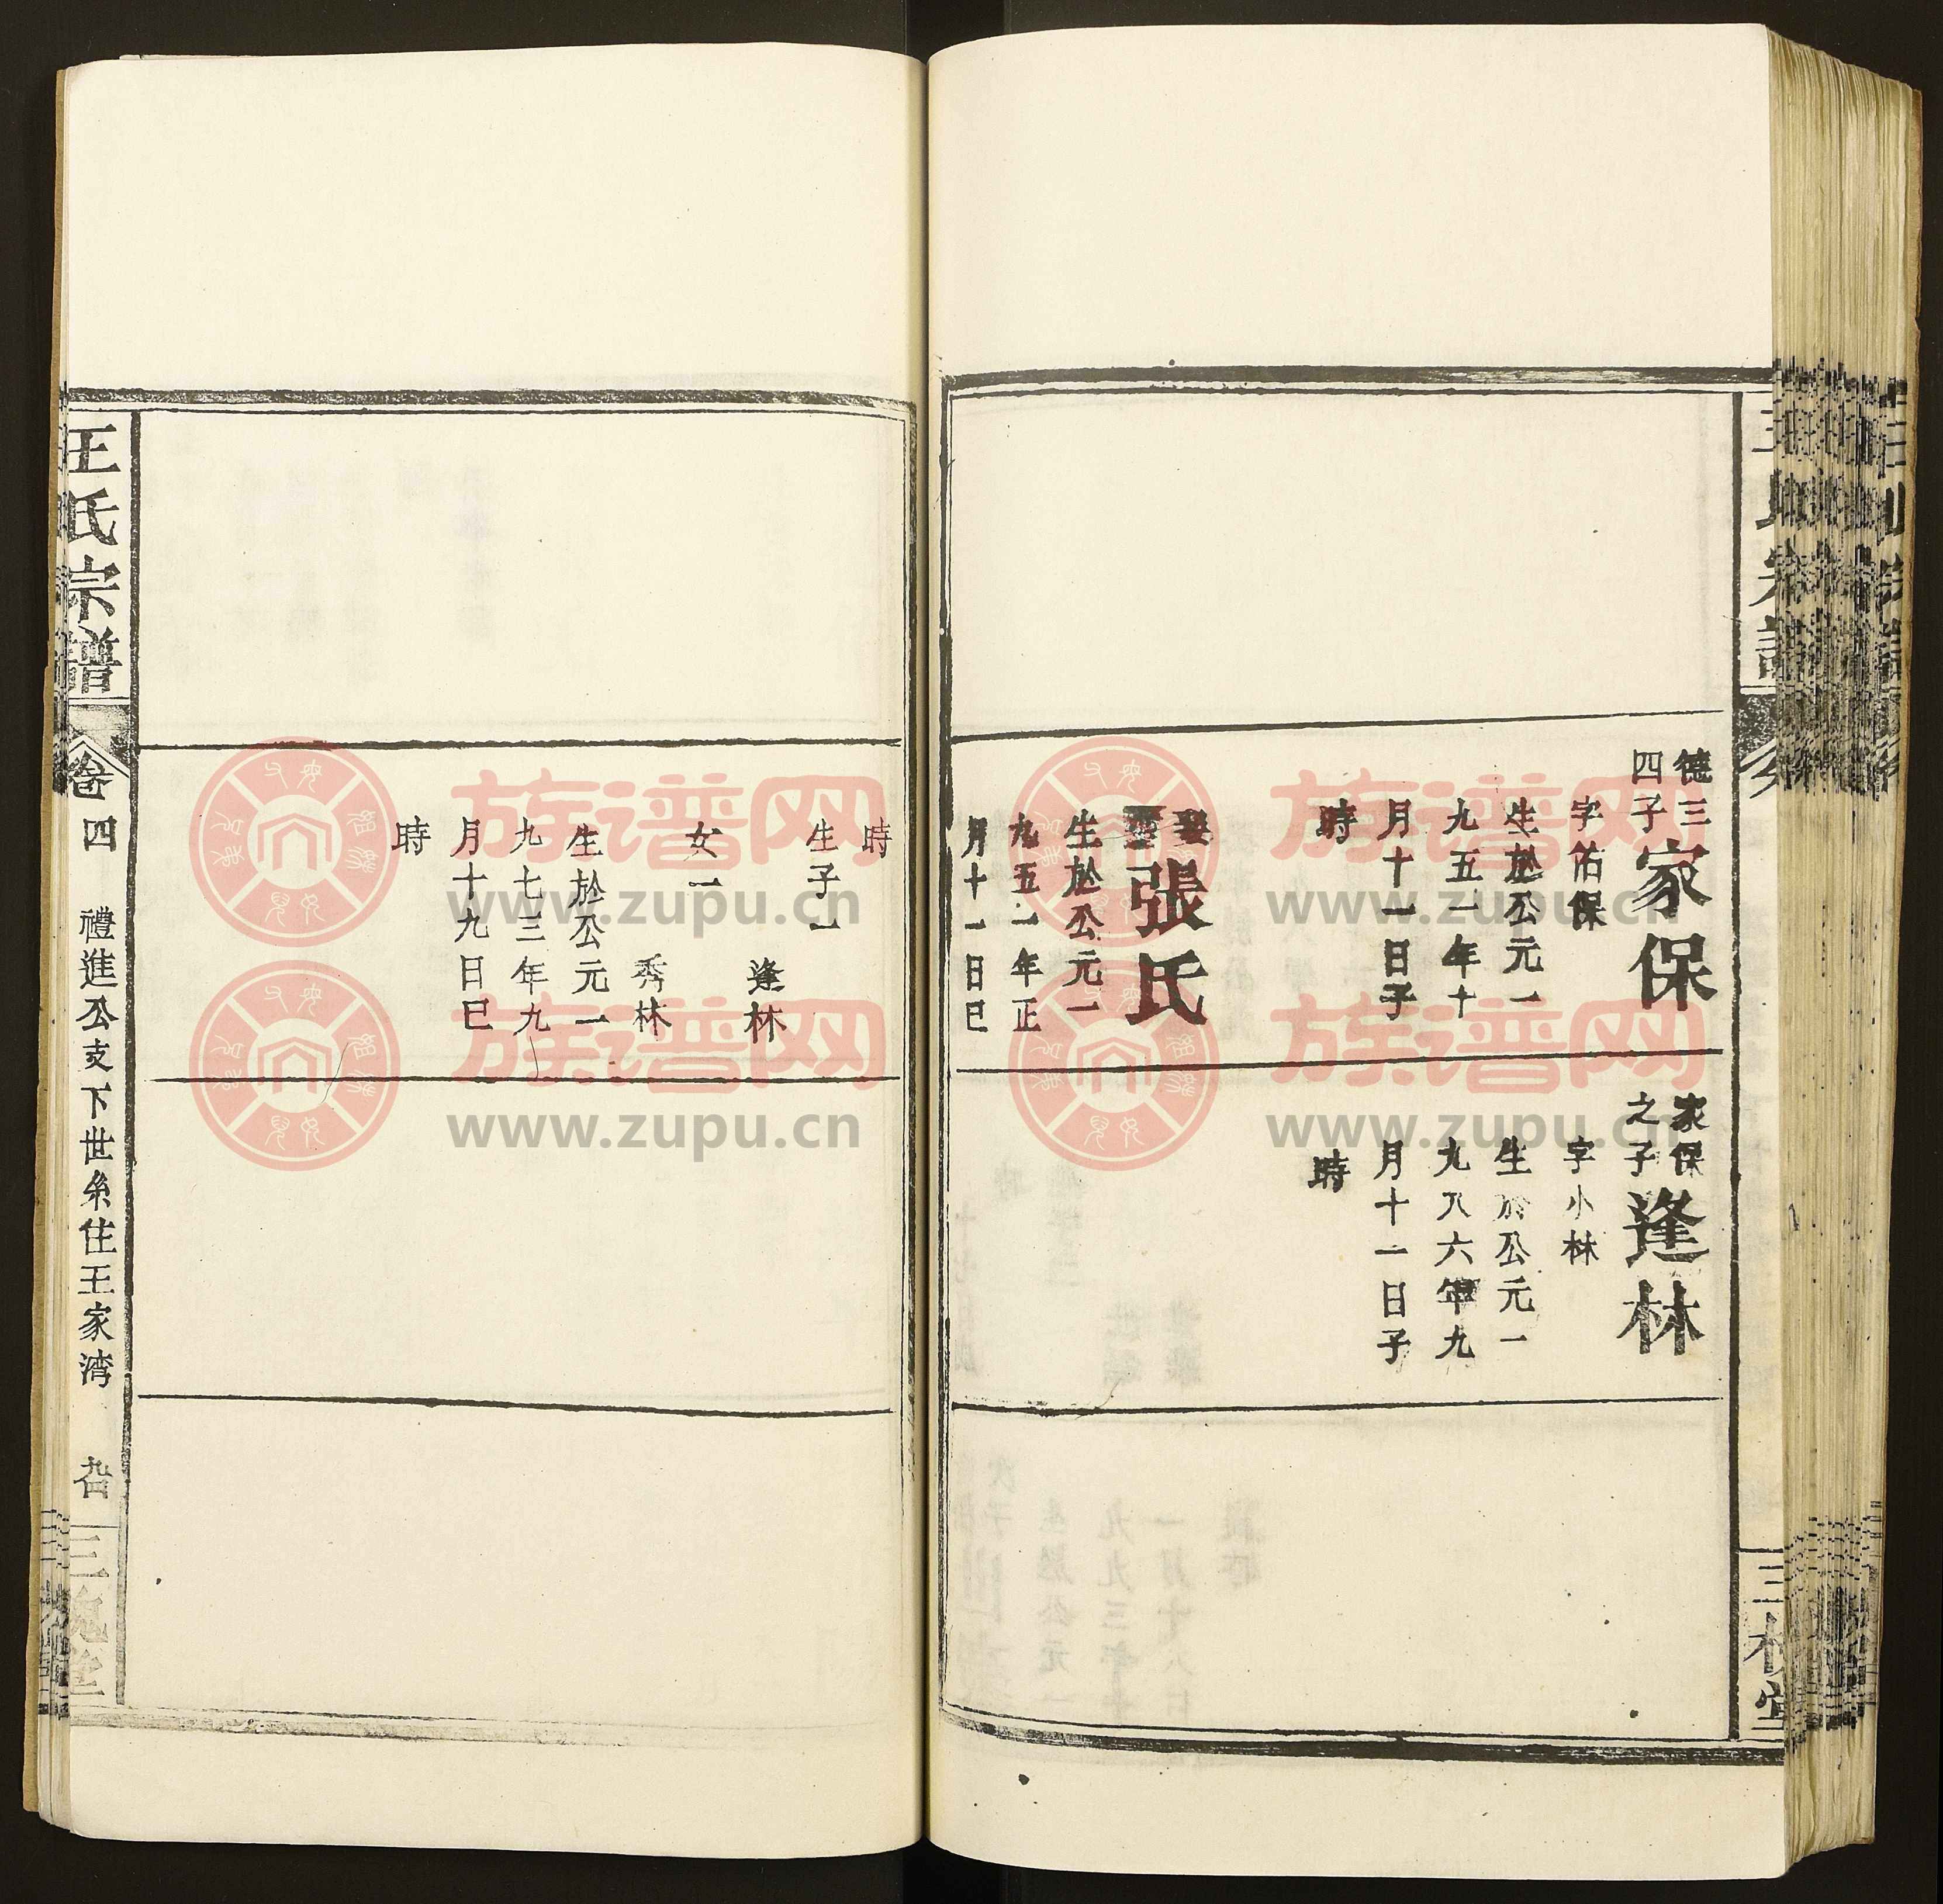 德三
四子
家保
字佑保
生於公元一
九五一年十
月十一日子
時
娶
張氏
生於公元一
九五一年正
月十一日巳
家保
之子
逢林
字小林
生於公元一
九八六年九
月十一日子
時
三槐堂
時
生子一
逢林
女一
秀林
生於公元一
九七三年九
月十九日巳
時
王氏宗譜
卷四
禮進公支下世系住王家湾
三槐堂
族谱网
www.zupu.cn
族谱网
www.zupu.cn
族谱网
www.zupu.cn
族谱网
www.zupu.cn